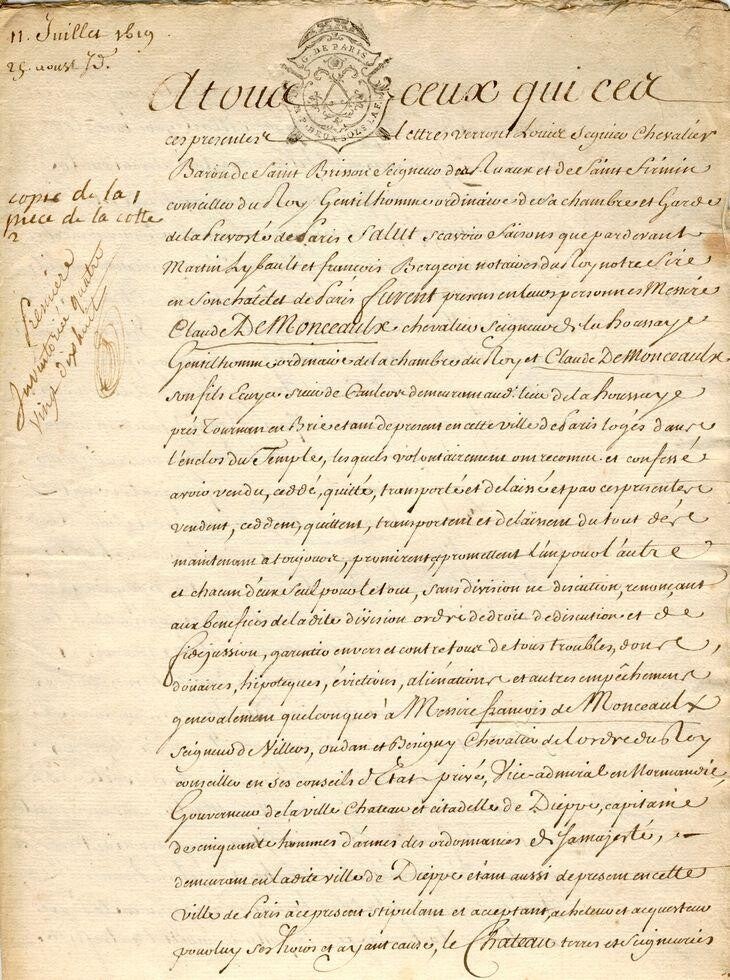 11. Juillet 1619
25. aoust Jd.
G. DE PARIS
P. DEUX SOLS LA F.
copie de la 1
piece de la cotte
2
Premiere
Inventorié quatre
vingt dix huit
A tous ceux qui ces
ces presentes lettres verront Louis Seguier Chevalier
Baron de Saint Brisson Seigneur des Ruaux et de Saint firmin
conseiller du Roy Gentilhomme ordinaire de sa chambre et Garde
de la Prevosté de Paris Salut scavoir faisons que pardevant
Martin Lybault et françois Bergeon notaires du Roy notre Sire
en son châtelet de Paris furent presens en leurs personnes Messire
Claude De Monceaulx chevalier seigneur de la houssaye
Gentilhomme ordinaire de la chambre du Roy et Claude De Monceaulx
son fils Ecuyer sieur de demeurans aud. lieu de la houssaye
prés Tournan en Brie et ans de present en cette ville de Paris logés dans
l'enclos du Temple, lesquels volontairement ont reconnu et confessé
avoir vendu, ceddé, quitté, transporté et delaissé et par ces presentes
vendent, ceddent, quittent, transportent et delaissent du tout dés
maintenant a toujours, promirent, promettent l'un pour l'autre
et chacun d'eux seul pour le tout, sans division ne discution, renonçant
aux benefices de la dite division ordre de droit de discution et de
fidejussion, garentir envers et contre tous de tous troubles, dons,
douaires, hipoteques, évictions, aliénations et autres empêchemens
generalement quelconques à Messire françois de Monceaulx
seigneur de Villers, oudan et Besigny Chevalier de l'ordre du Roy
conseiller en ses conseils d'Etat privé, Vice-admiral en Normandie,
Gouverneur de la ville Chateau et citadelle de Dieppe, capitaine
de cinquante hommes d'armes des ordonnances de sa majesté,
demeurant en la dite ville de Dieppe étant aussi de present en cette
ville de Paris à ce present stipulant et acceptant, acheteur et acquesteur
pour luy ses hoirs et ayant cause, le Chateau terres et seigneuries